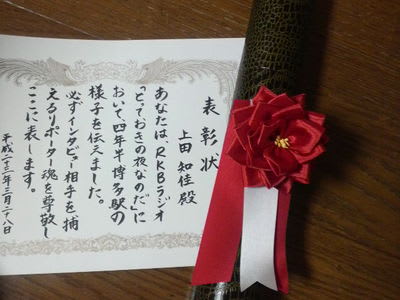 表彰状
上田知佳殿
あなたは、RKBラジオ
「とっておきの夜なのだ」に
おいて、四年半博多駅の
様子を伝えました。
必ずインタビュー相手を捕
えるリポーター魂を尊敬し
ここに表します。
平成二十三年三月二十八日